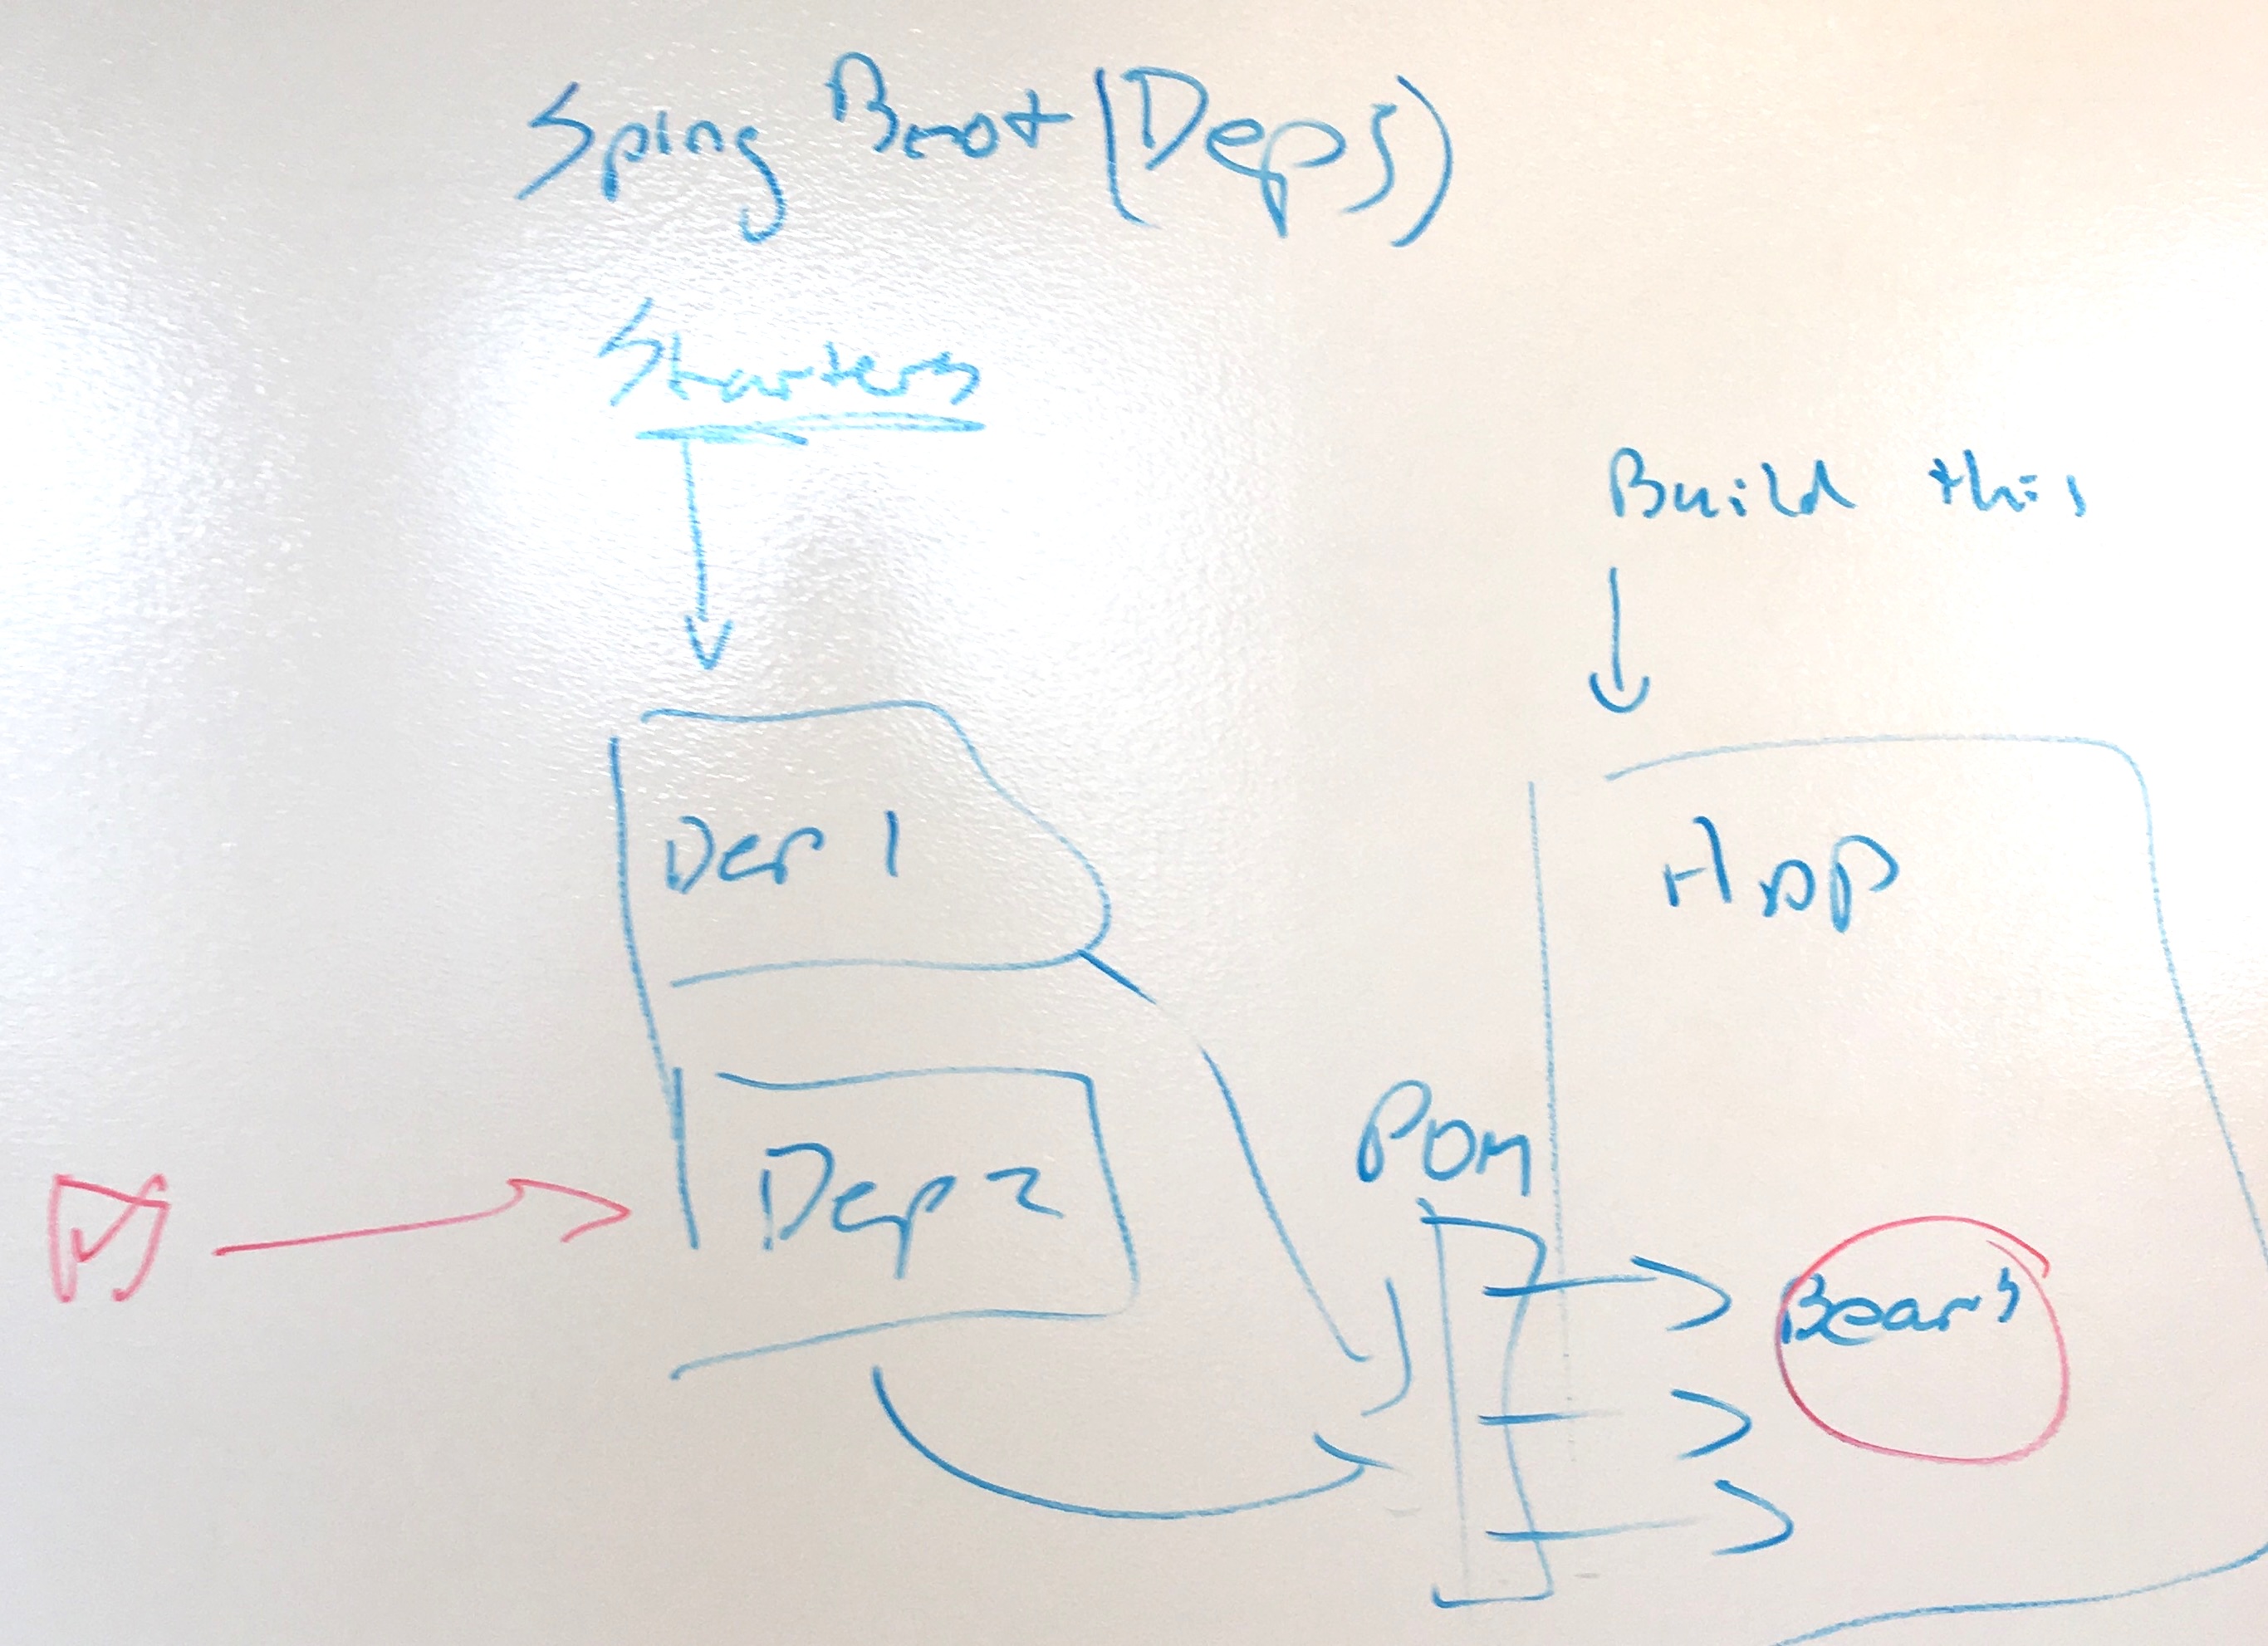 Sping Boot (Deps)
Starters
Build this
Dep 1
App
POM
Dep 2
Beans